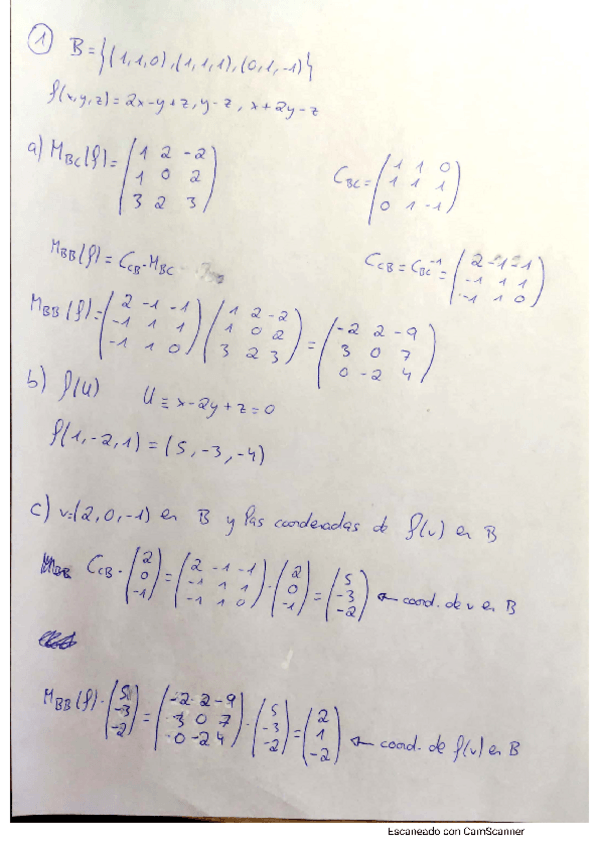 ① B={(1,1,0),(1,1,1),(0,1,-1)}
f(x,y,z)=2x-y+z,y-z, x+2y-z
a) M_BC(f)=(1 2 -2 / 1 0 2 / 3 2 3) C_BC=(1 1 0 / 1 1 1 / 0 1 -1)
M_BB(f)=C_CB·M_BC C_CB=C_BC⁻¹=(2 -1 -1 / -1 1 1 / -1 1 0)
M_BB(f)=(2 -1 -1 / -1 1 1 / -1 1 0)(1 2 -2 / 1 0 2 / 3 2 3)=(-2 2 -9 / 3 0 7 / 0 -2 4)
b) f(U) U≡x-2y+z=0
f(1,-2,1)=(5,-3,-4)
c) v=(2,0,-1) en B y las coordenadas de f(v) en B
C_CB·(2 / 0 / -1)=(2 -1 -1 / -1 1 1 / -1 1 0)·(2 / 0 / -1)=(5 / -3 / -2) ← coord. de v en B
M_BB(f)·(5 / -3 / -2)=(-2 2 -9 / 3 0 7 / 0 -2 4)·(5 / -3 / -2)=(2 / 1 / -2) ← coord. de f(v) en B
Escaneado con CamScanner